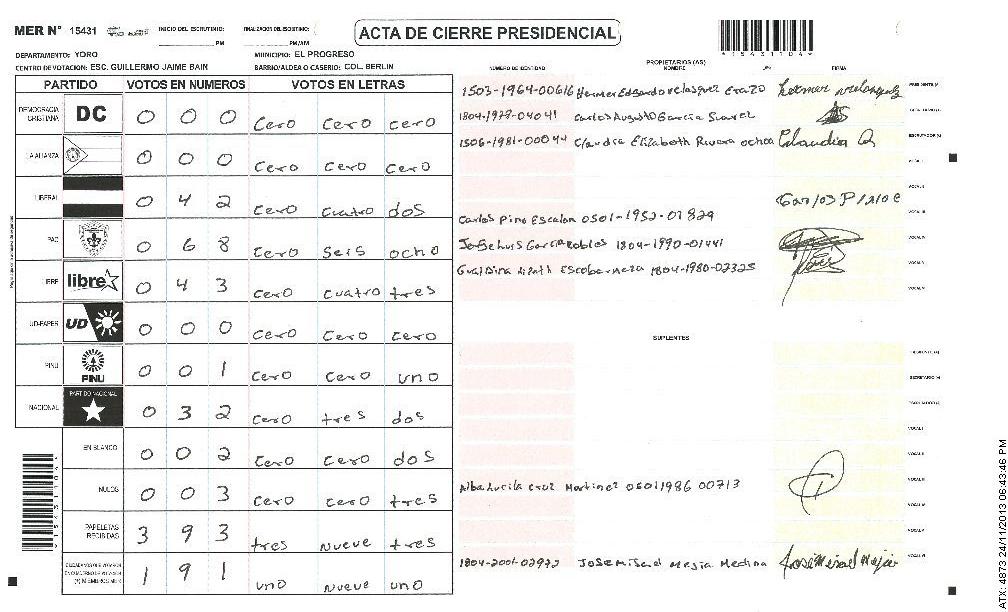 MER N° 15431 INICIO DEL ESCRUTINIO: PM FINALIZACION DEL ESCRUTINIO: PM/AM
ACTA DE CIERRE PRESIDENCIAL
15431104
DEPARTAMENTO: YORO MUNICIPIO: EL PROGRESO
CENTRO DE VOTACION: ESC. GUILLERMO JAIME BAIN BARRIO/ALDEA O CASERIO: COL. BERLIN
PARTIDO VOTOS EN NUMEROS VOTOS EN LETRAS
DEMOCRACIA CRISTIANA DC 0 0 0 cero cero cero
LA ALIANZA 0 0 0 cero cero cero
LIBERAL 0 4 2 cero cuatro dos
PAC 0 6 8 cero seis ocho
LIBRE libre 0 4 3 cero cuatro tres
UD-FAPER UD 0 0 0 cero cero cero
PINU PINU 0 0 1 cero cero uno
NACIONAL PARTIDO NACIONAL 0 3 2 cero tres dos
EN BLANCO 0 0 2 cero cero dos
NULOS 0 0 3 cero cero tres
PAPELETAS RECIBIDAS 3 9 3 tres nueve tres
CIUDADANOS QUE VOTARON EN CUADERNO DE VOTACION (+) MIEMBROS MER 1 9 1 uno nueve uno
PROPIETARIOS (AS)
NUMERO DE IDENTIDAD NOMBRE FIRMA
1503-1964-00616 Hermer Edgardo Velasquez Erazo PRESIDENTE (A)
1804-1978-04041 Carlos Augusto Garcia Suarez SECRETARIO (A)
1506-1981-00044 Claudia Elizabeth Rivera ochoa Claudia R ESCRUTADOR (A)
VOCAL I
VOCAL II
Carlos Pino Escalon 0501-1952-01829 Carlos Pino E VOCAL III
Jose Luis Garcia Robles 1804-1990-01441 VOCAL IV
1804-1980-02325 VOCAL V
VOCAL VI
SUPLENTES
PRESIDENTE (A)
SECRETARIO (A)
ESCRUTADOR (A)
VOCAL I
VOCAL II
Alba Lucila Cruz Martinez 0501 1986 00713 VOCAL III
VOCAL IV
VOCAL V
1804-2001-02972 Jose Misael Mejia Medina Jose Misael Mejia VOCAL VI
ATX: 4873 24/11/2013 06:43:46 PM